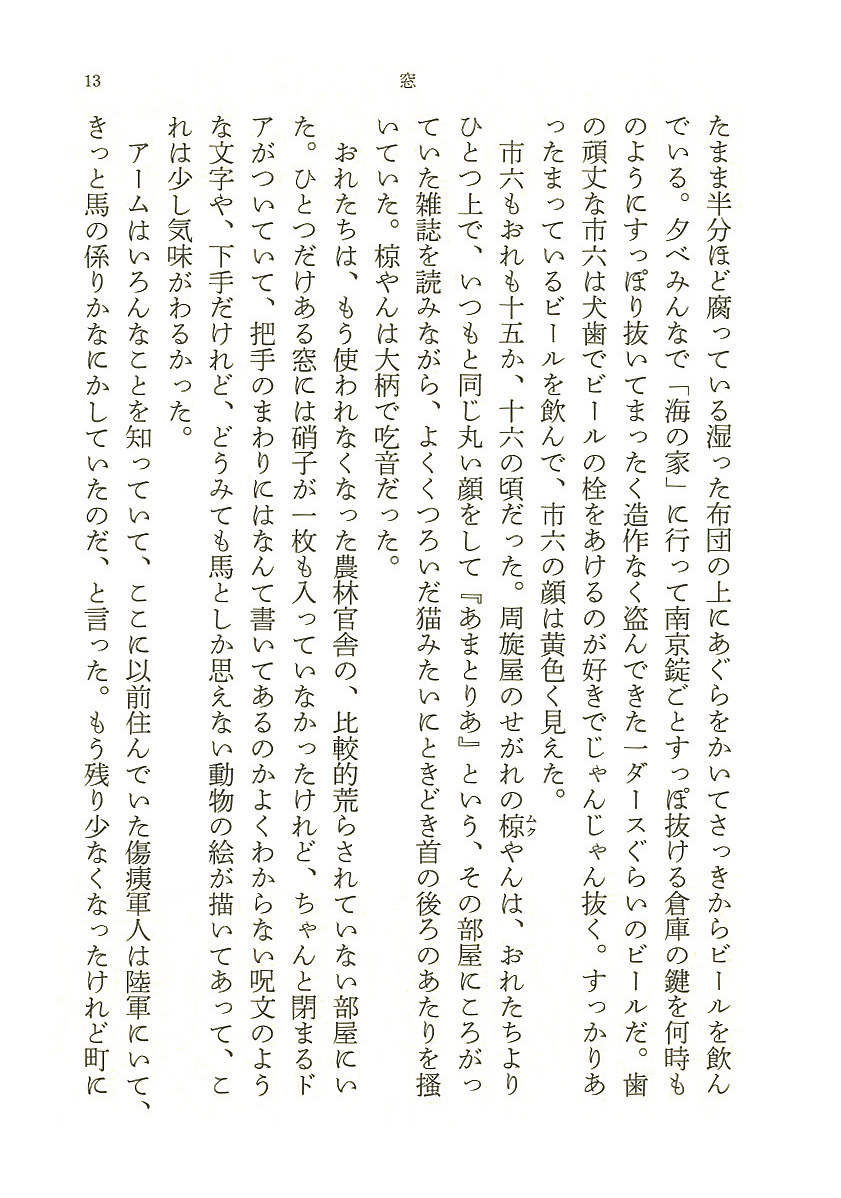 13
窓
たまま半分ほど腐っている湿った布団の上にあぐらをかいてさっきからビールを飲ん
でいる。夕べみんなで「海の家」に行って南京錠ごとすっぽ抜ける倉庫の鍵を何時も
のようにすっぽり抜いてまったく造作なく盗んできた一ダースぐらいのビールだ。歯
の頑丈な市六は犬歯でビールの栓をあけるのが好きでじゃんじゃん抜く。すっかりあ
ったまっているビールを飲んで、市六の顔は黄色く見えた。
市六もおれも十五か、十六の頃だった。周旋屋のせがれの椋やんは、おれたちより
ムク
ひとつ上で、いつもと同じ丸い顔をして『あまとりあ』という、その部屋にころがっ
ていた雑誌を読みながら、よくくつろいだ猫みたいにときどき首の後ろのあたりを掻
いていた。椋やんは大柄で吃音だった。
おれたちは、もう使われなくなった農林官舎の、比較的荒らされていない部屋にい
た。ひとつだけある窓には硝子が一枚も入っていなかったけれど、ちゃんと閉まるド
アがついていて、把手のまわりにはなんて書いてあるのかよくわからない呪文のよう
な文字や、下手だけれど、どうみても馬としか思えない動物の絵が描いてあって、こ
れは少し気味がわるかった。
アームはいろんなことを知っていて、ここに以前住んでいた傷痍軍人は陸軍にいて、
きっと馬の係りかなにかしていたのだ、と言った。もう残り少なくなったけれど町に